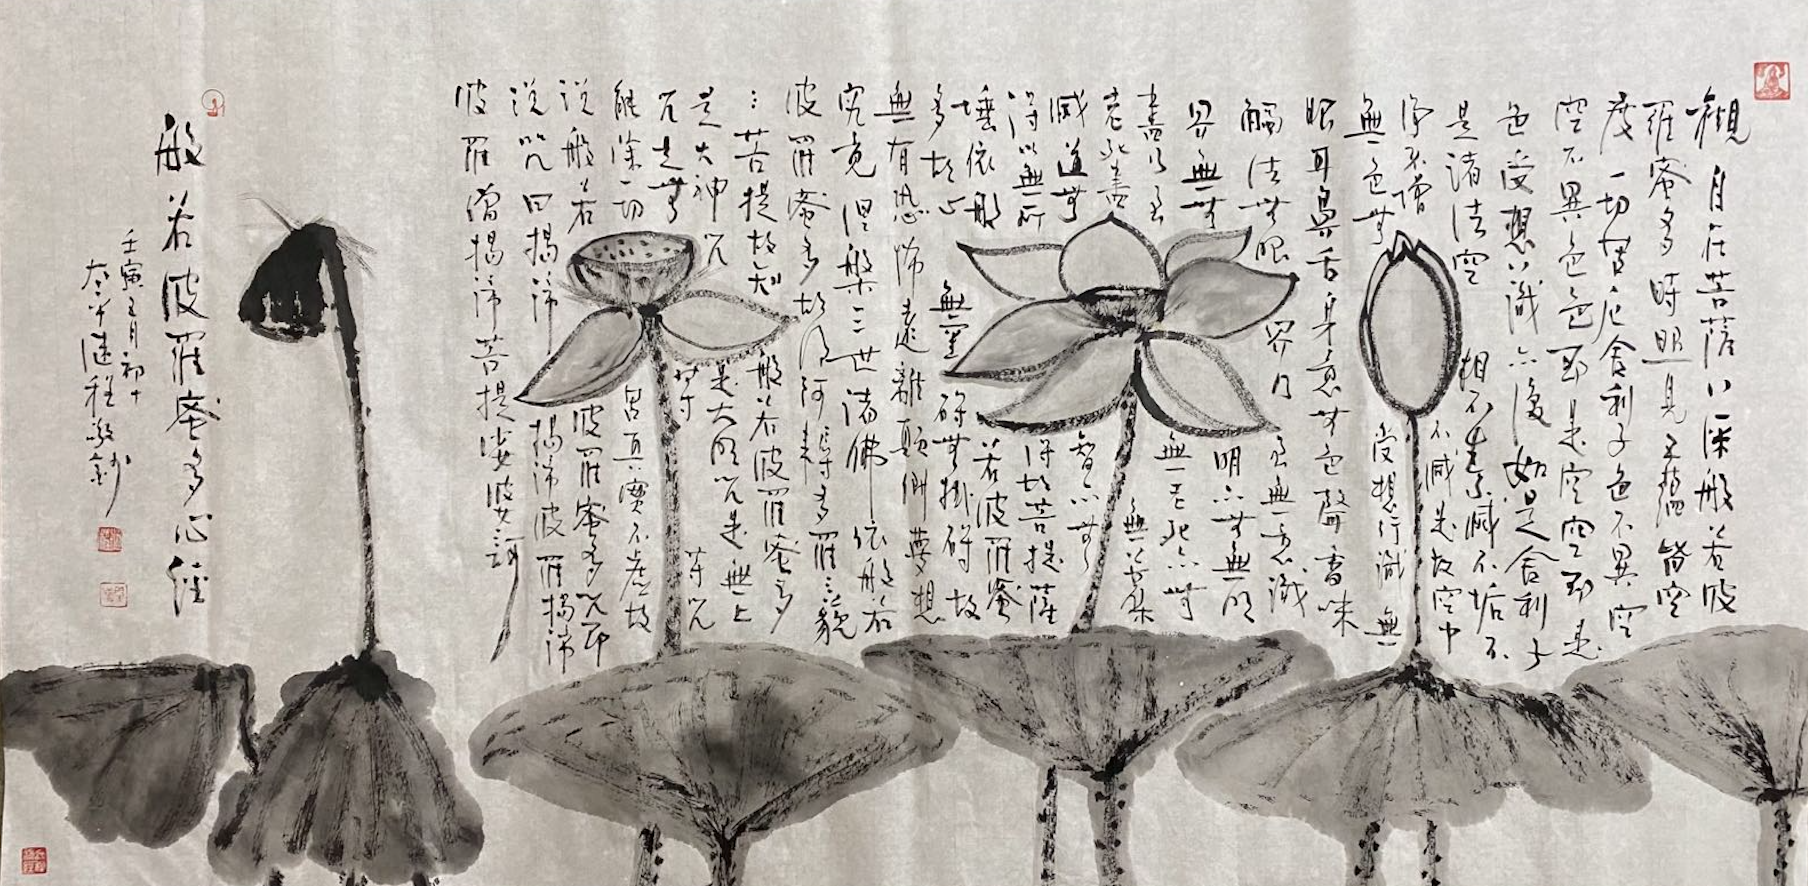 觀自在菩薩行深般若波
羅蜜多時照見五蘊皆空
度一切苦厄舍利子色不異空
空不異色色即是空空即是
色受想行識亦復如是舍利子
是諸法空相不生不滅不垢不
淨不增不減是故空中
無色無受想行識無
眼耳鼻舌身意無色聲香味
觸法無眼界乃至無意識
界無無明亦無無明
盡乃至無老死亦無
老死盡無苦集
滅道無智亦無
得以無所得故菩提薩
埵依般若波羅蜜
多故心無罣碍無掛碍故
無有恐怖遠離顛倒夢想
究竟涅槃三世諸佛依般若
波羅蜜多故得阿耨多羅三藐
三菩提故知般若波羅蜜多
是大神咒是大明咒是無上
咒是無等等咒
能除一切苦真實不虛故
說般若波羅蜜多咒即
說咒曰揭諦揭諦波羅揭諦
波羅僧揭諦菩提娑婆訶
般若波羅蜜多心經
壬寅五月初十
太平繼程敬鈔